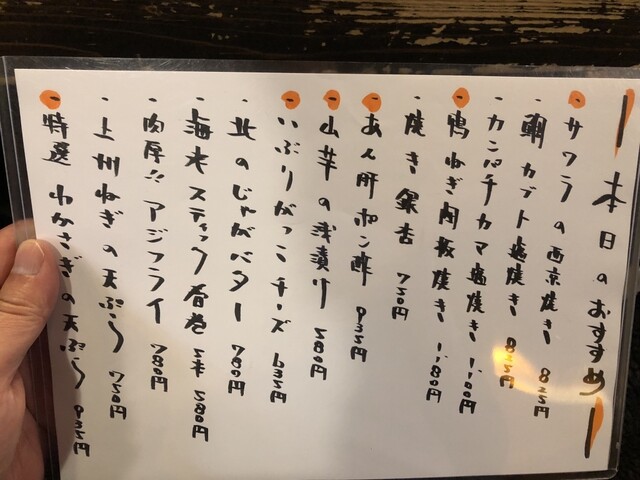 本日のおすすめ
サワラの西京焼き 825円
・鯛カブト塩焼き 825円
・カンパチカマ塩焼き 1,100円
鴨ねぎ陶板焼き 1,180円
・焼き銀杏 750円
あん肝ポン酢 935円
山芋の浅漬け 580円
いぶりがっこチーズ 635円
・北のじゃがバター 780円
・海老スティック春巻 2本 580円
・肉厚!!アジフライ 780円
・上州ねぎの天ぷら 750円
特選わかさぎの天ぷら 935円